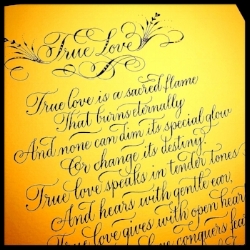 True Love
True love is a sacred flame
That burns eternally
And none can dim its special glow
Or change its destiny.
True love speaks in tender tones
And hears with gentle ear,
True love gives with open heart
conquers fear